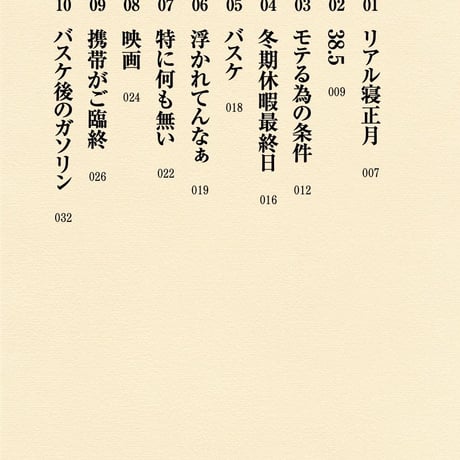 01 リアル寝正月 007
02 38.5 009
03 モテる為の条件 012
04 冬期休暇最終日 016
05 バスケ 018
06 浮かれてんなぁ 019
07 特に何も無い 022
08 映画 024
09 携帯がご臨終 026
10 バスケ後のガソリン 032